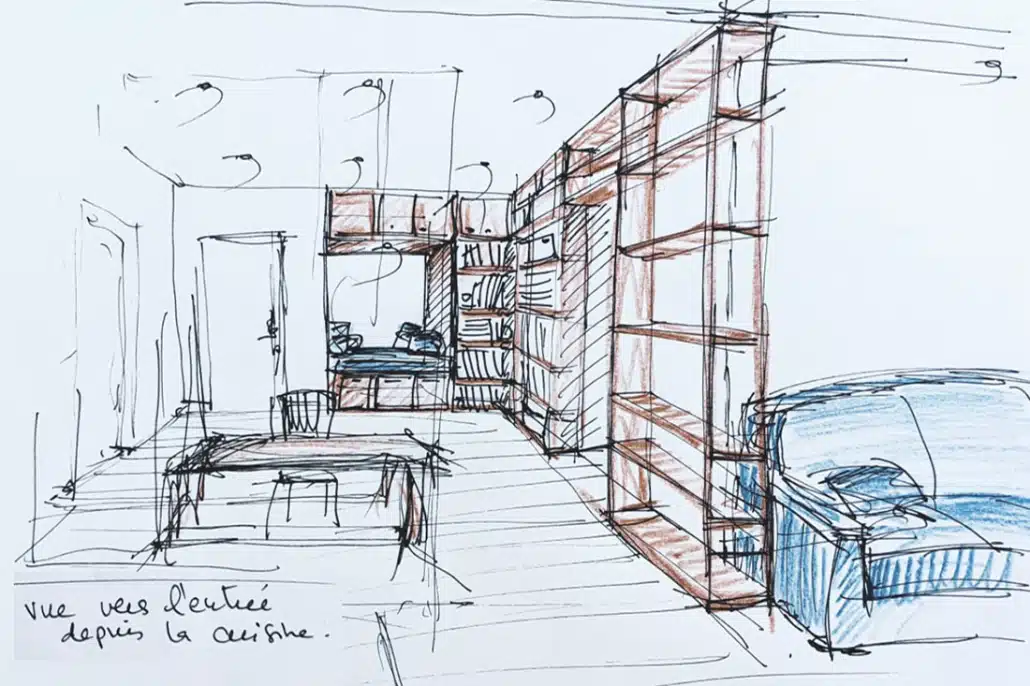 vue vers l'entrée
depuis la cuisine.